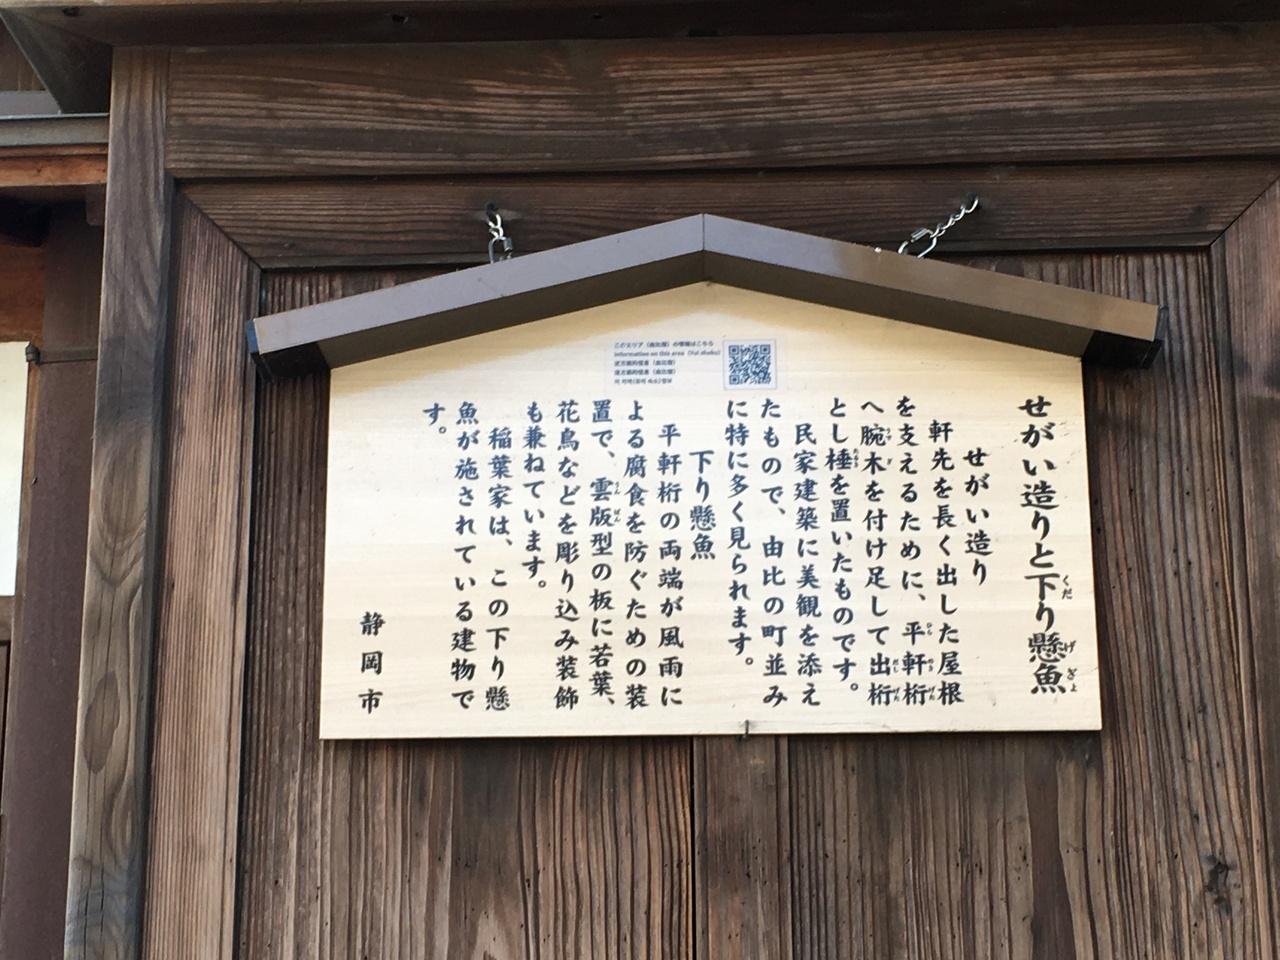 せがい造りと下り懸魚
せがい造り
軒先を長く出した屋根
を支えるために、平軒桁
へ腕木を付け足して出桁
とし棰を置いたものです。
民家建築に美観を添え
たもので、由比の町並み
に特に多く見られます。
下り懸魚
平軒桁の両端が風雨に
よる腐食を防ぐための装
置で、雲版型の板に若葉、
花鳥などを彫り込み装飾
も兼ねています。
稲葉家は、この下り懸
魚が施されている建物で
す。
静岡市
このエリア（由比宿）の情報はこちら
Information on this area (Yui shuku)